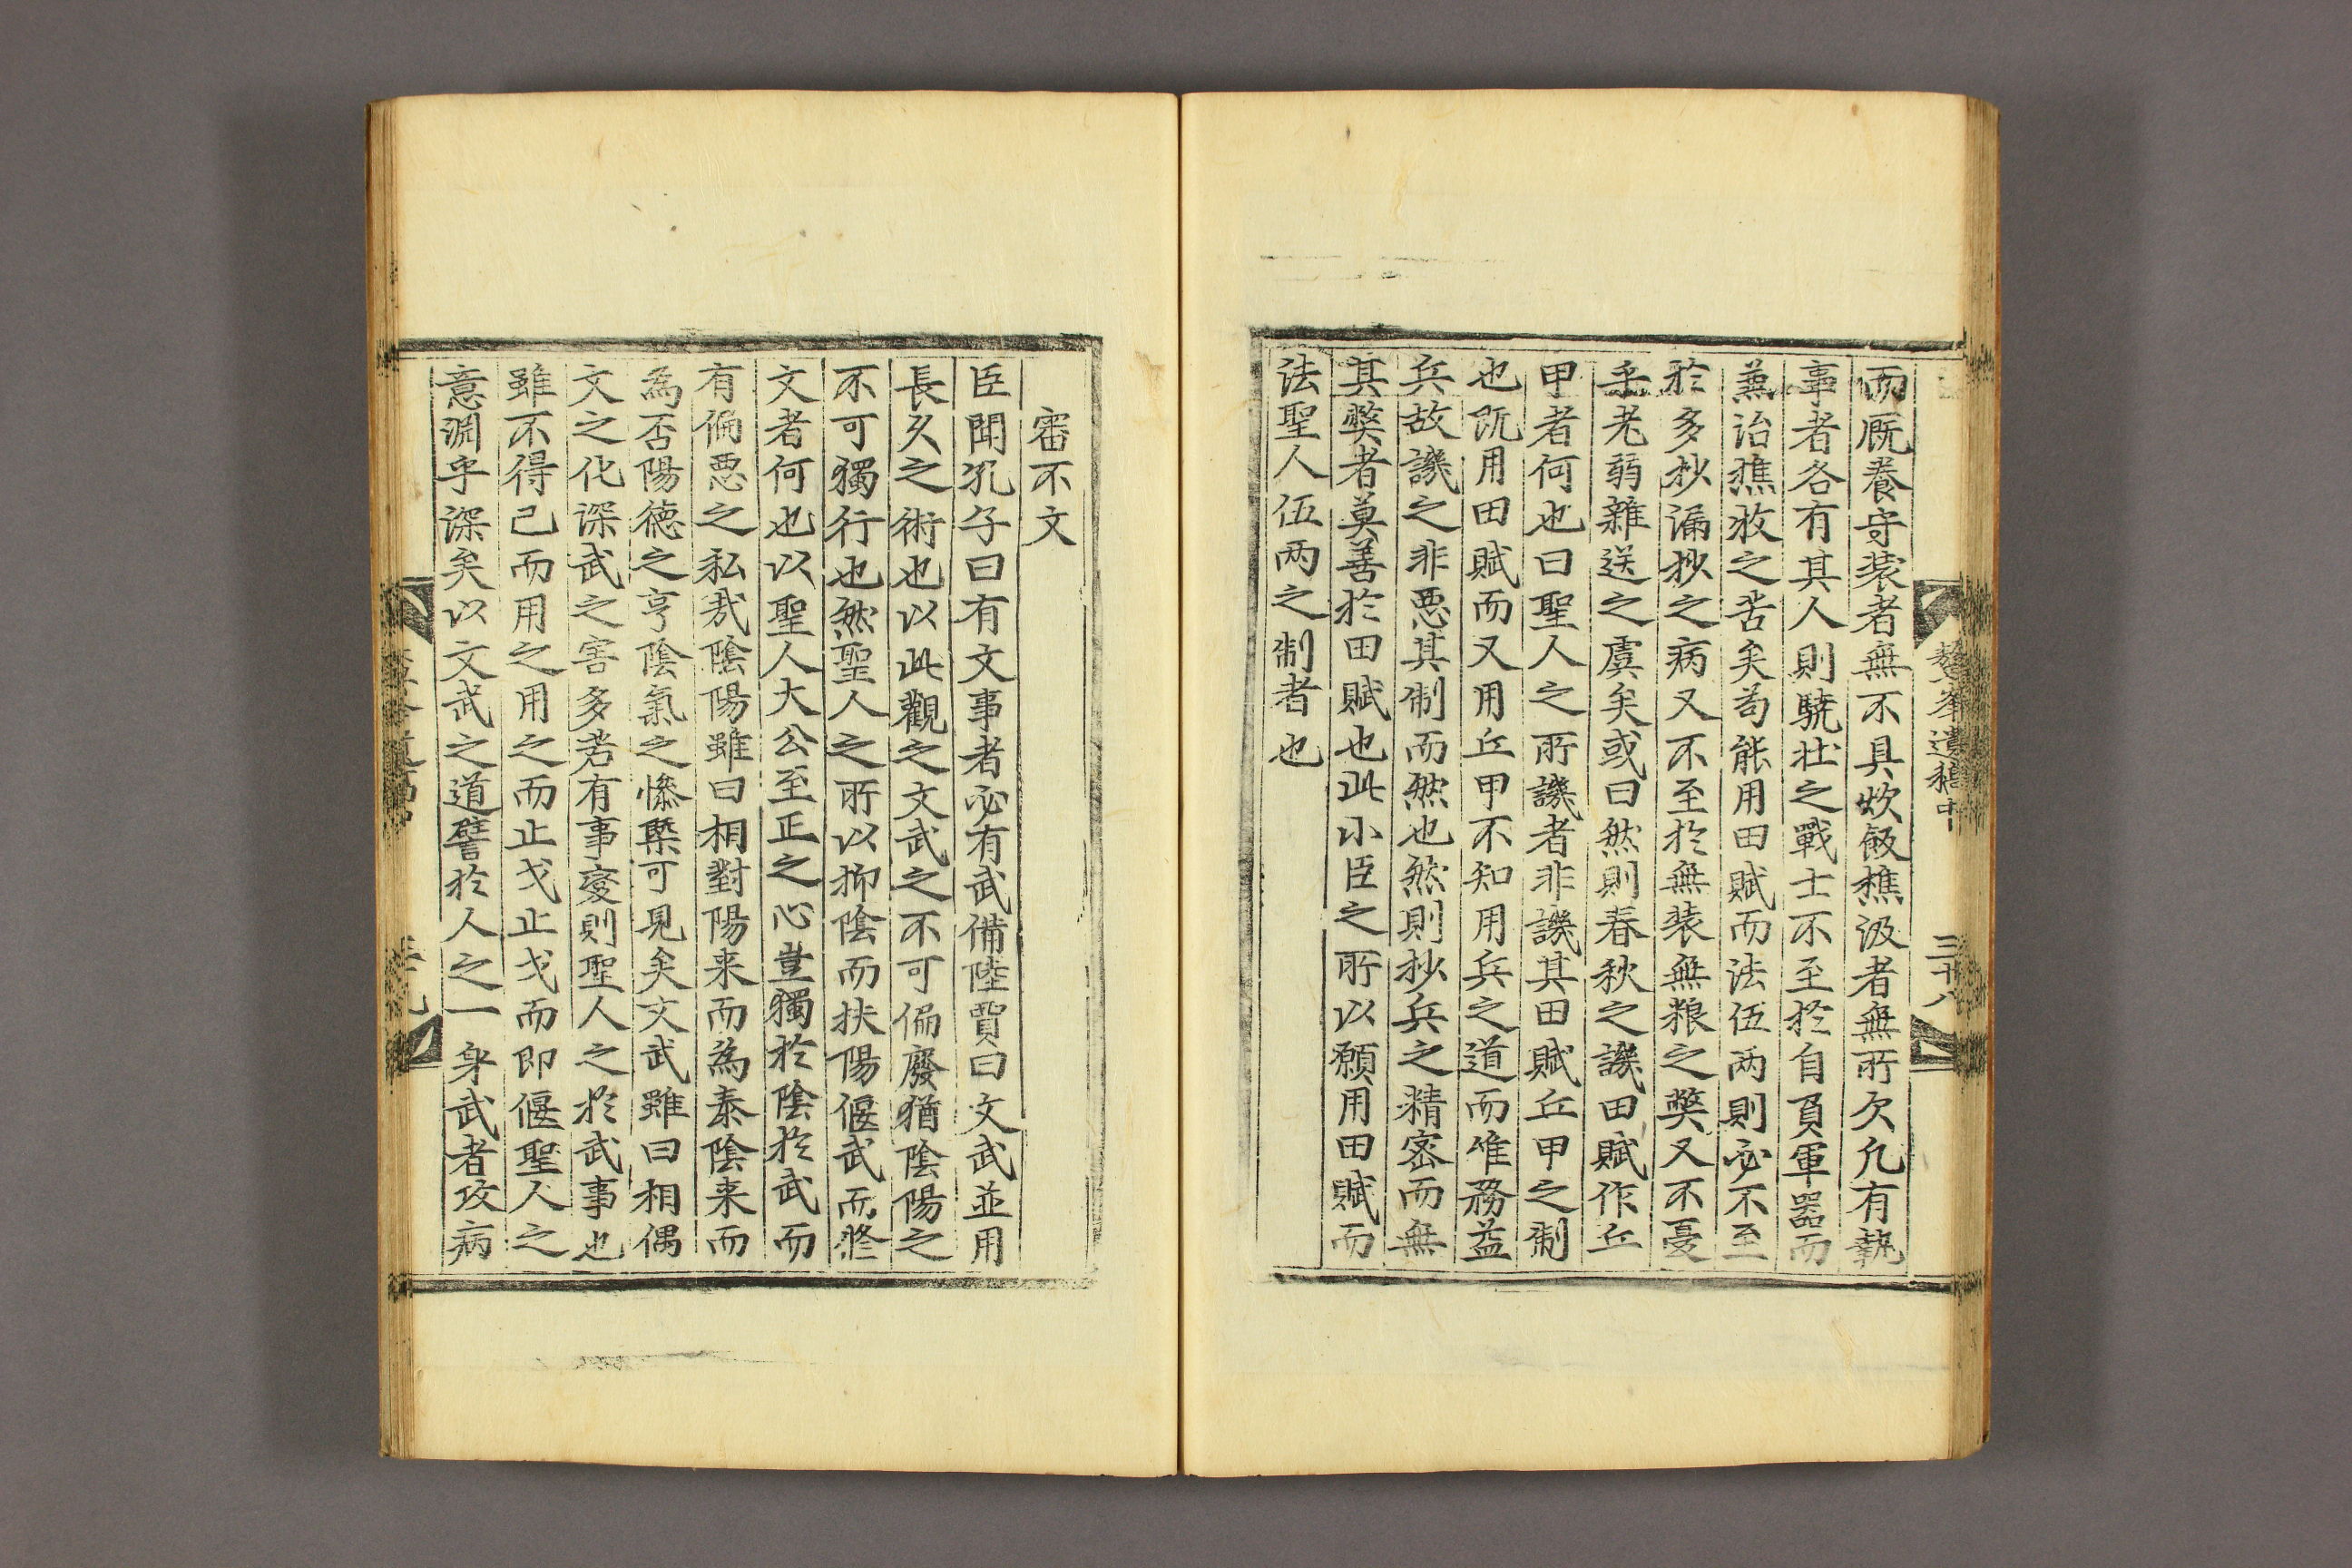 而厩養守装者無不具炊飯樵汲者無所欠凡有執
事者各有其人則驍壯之戰士不至於自負軍器而
兼治樵牧之苦矣苟能用田賦而法伍两則必不至
於多抄漏抄之病又不至於無装無粮之獘又不憂
乎老弱雜送之虞矣或曰然則春秋之譏田賦作丘
甲者何也曰聖人之所譏者非譏其田賦丘甲之制
也旣用田賦而又用丘甲不知用兵之道而惟務益
兵故譏之非惡其制而然也然則抄兵之精密而無
其獘者莫善於田賦也此小臣之所以願用田賦而
法聖人伍两之制者也
遺稿中
三十八
審不文
臣聞孔子曰有文事者必有武備陸賈曰文武並用
長久之術也以此觀之文武之不可偏廢猶陰陽之
不可獨行也然聖人之所以抑陰而扶陽偃武而修
文者何也以聖人大公至正之心豈獨於陰於武而
有偏惡之私㢤陰陽雖曰相對陽来而為泰陰来而
為否陽德之亨陰氣之慘槩可見矣文武雖曰相偶
文之化深武之害多若有事變則聖人之於武事也
雖不得已而用之用之而止戈止戈而即偃聖人之
意淵乎深矣以文武之道譬於人之一身武者攻病